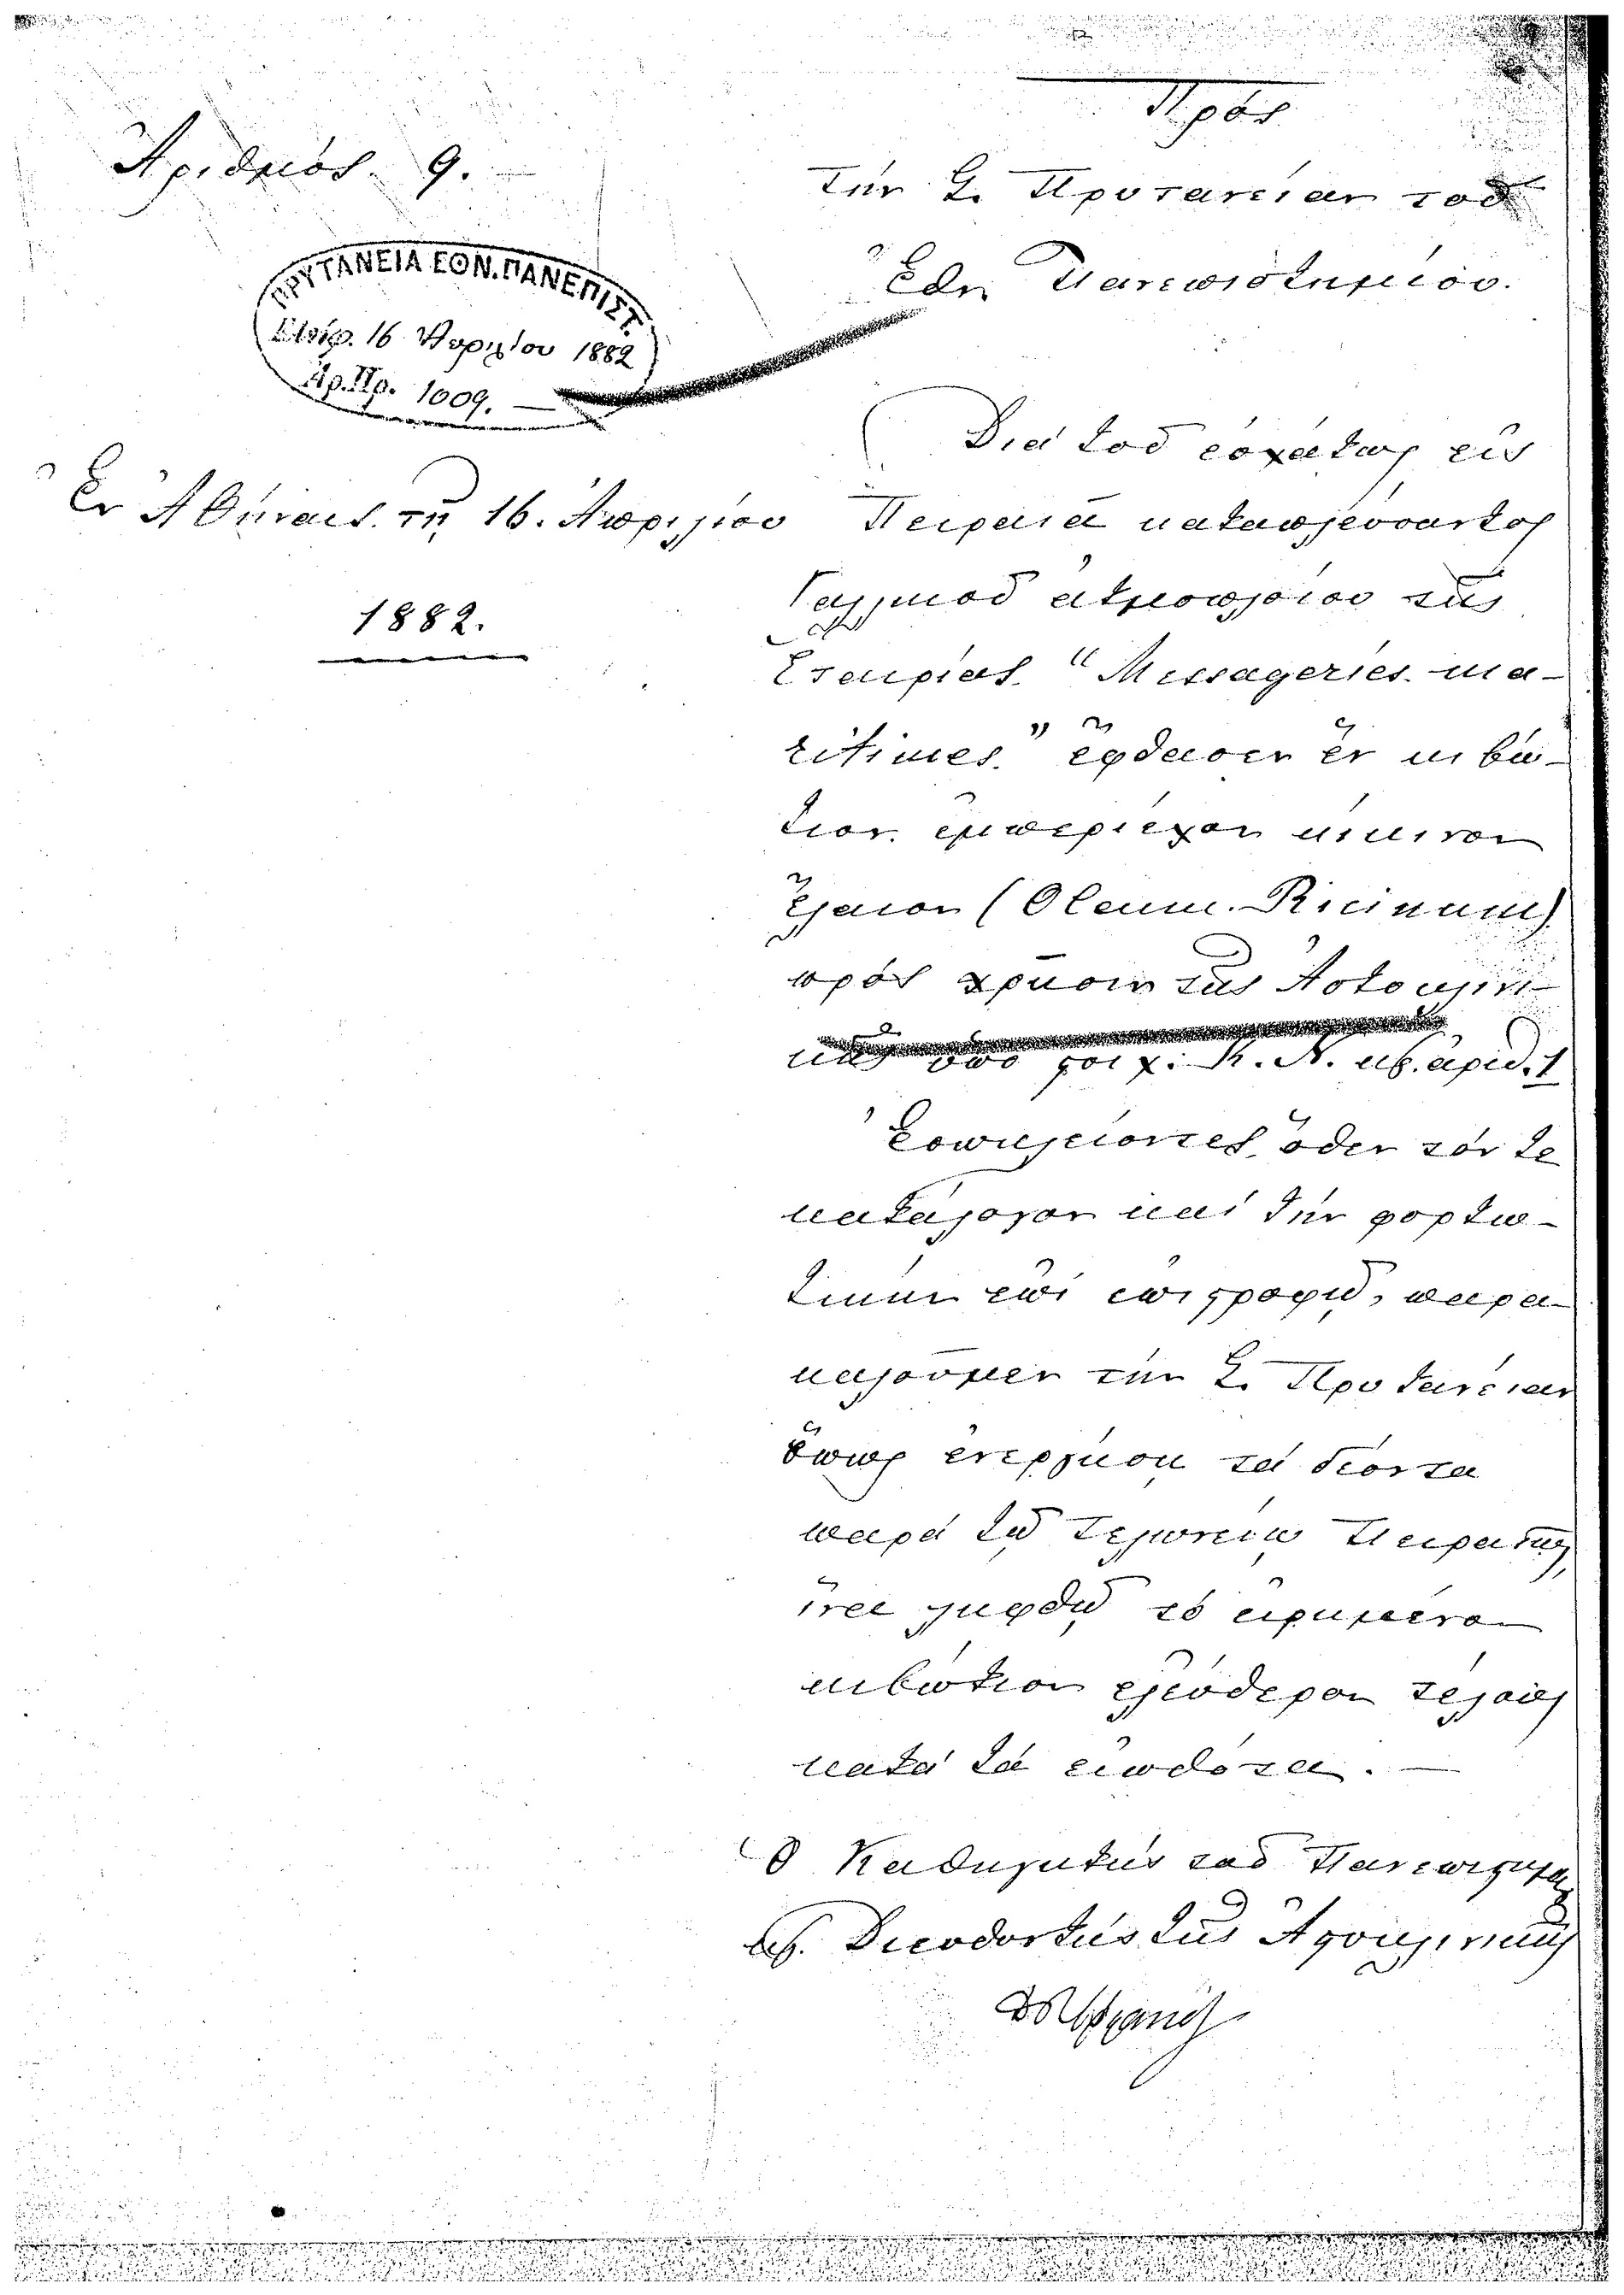 Ἀριθμὸς 9.
ΠΡΥΤΑΝΕΙΑ ΕΘΝ. ΠΑΝΕΠΙΣΤ.
16 Ἀπριλίου 1882
Ἀρ. Πρ. 1009.
Ἐν Ἀθήναις τῇ 16. Ἀπριλίου
1882.
Πρὸς
Τὴν Σ. Πρυτανείαν τοῦ
Ἐθν. Πανεπιστημίου.
Διὰ τοῦ ἐσχάτως εἰς
Πειραιᾶ καταπλεύσαντος
Γαλλικοῦ ἀτμοπλοίου τῆς
Ἑταιρίας "Messageries ma-
ritimes" ἔφθασεν ἓν κιβώ-
τιον ἐμπεριέχον κίκινον
ἔλαιον (Oleum Ricinum)
πρὸς χρῆσιν τῆς Ἀστυκλινι-
κῆς ὑπὸ στοιχ. Κ. Ν. καὶ ἀριθ. 1
Ἐσωκλείοντες ὅθεν τόν τε
κατάλογον καὶ τὴν φορτω-
τικὴν ἐπὶ ἐπιστροφῇ, παρα-
καλοῦμεν τὴν Σ. Πρυτανείαν
ὅπως ἐνεργήσῃ τὰ δέοντα
παρὰ τῷ Τελωνείῳ Πειραιῶς,
ἵνα ληφθῇ τὸ εἰρημένον
κιβώτιον ἐλεύθερον τέλους
κατὰ τὰ εἰωθότα.
Ὁ Καθηγητὴς τοῦ Πανεπιστημίου
καὶ Διευθυντὴς τῆς Ἀστυκλινικῆς